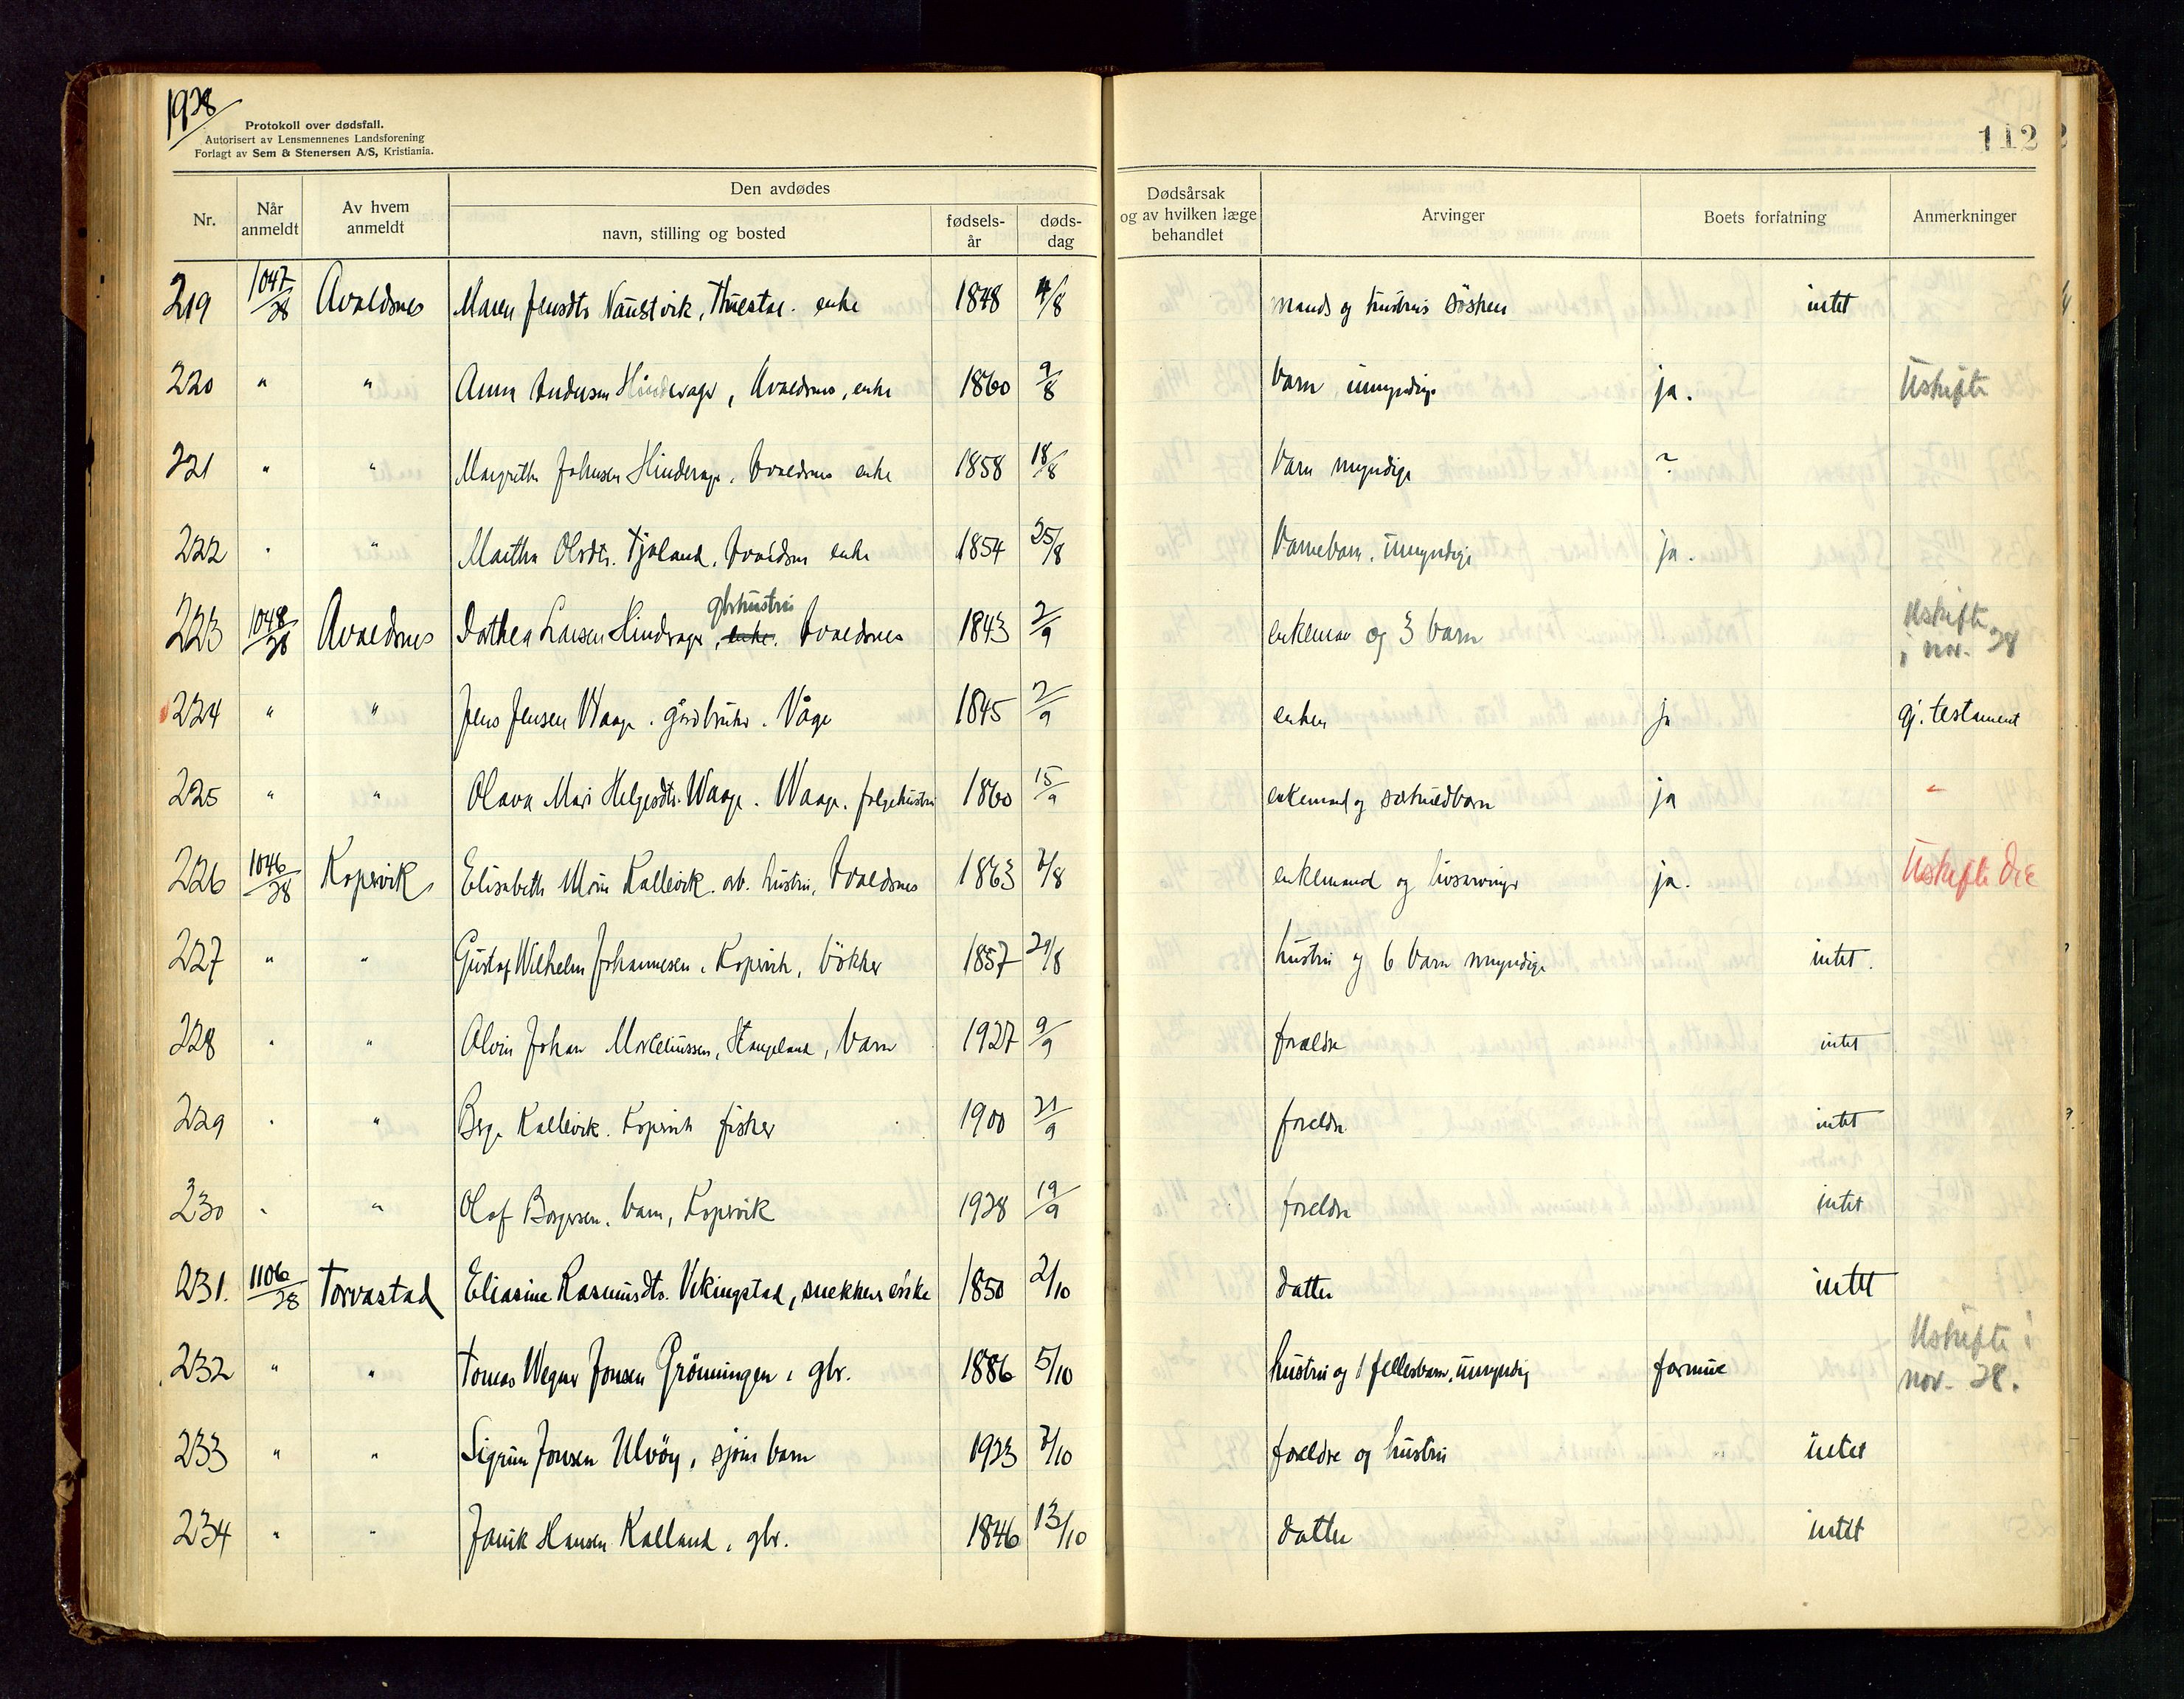 1928
Protokoll over dødsfall.
Autorisert av Lensmennenes Landsforening
Forlagt av Sem & Stenersen A/S, Kristiania.
112
Nr. Når anmeldt Av hvem anmeldt Den avdødes navn, stilling og bosted fødselsår dødsdag Dødsårsak og av hvilken læge behandlet Arvinger Boets forfatning Anmerkninger
219 1047/28 Avaldsnes Maren Jensdtr Naustvik, enke 1848 4/8 mands og hustrus søsken intet
220 " " Anna Andersen Hinderager, Avaldsnes, enke 1860 9/8 barn umyndige ja. Uskifte
221 " " Margrethe Johnsen Hinderager, Avaldsnes enke 1858 18/8 barn myndige ?
222 " " Martha Olsdtr. Tjøland, Avaldsnes enke 1854 25/8 barnebarn, umyndige ja.
223 1048/28 Avaldsnes Dorthea Larsen Hinderager, enke. gbrhustru Avaldsnes 1843 2/9 enkeman og 3 barn Uskifte i nov. 28
224 " " Jens Jensen Waage. gårdbruker. Våge 1845 2/9 enken ja gj. testament
225 " " Olava Mari Helgesdtr. Waage. Waage. folgehustru 1860 15/9 enkemand og særkuldbarn ja "
226 1046/28 Kopervik Elisabeth Marie Kallevik arb. hustru, Avaldsnes 1863 7/8 enkemand og livsarvinger ja. Uskifte
227 " " Gustav Wilhelm Johannesen, Kopervik, bøkker 1857 29/8 hustru og 6 barn myndige intet.
228 " " Alvin Johan Morceliussen, Stangeland, barn 1927 9/9 foreldre intet
229 " " Berge Kallevik. Kopervik fisker 1900 21/9 foreldre intet
230 " " Olaf Borgersen, barn, Kopervik 1928 19/9 foreldre intet
231. 1106/28 Torvastad Eliasine Rasmusdtr. Vikingstad, snekkers enke 1850 2/10 datter intet
232 " " Tomas Wegner Jonsen Grønningen, gbr. 1886 5/10 hustru og 1 fellesbarn, umyndig formue Uskifte i nov. 28.
233 " " Sigrun Jonsen Ulvøy, sjøm barn 1923 7/10 foreldre og hustru intet
234 " " Janik Hansen Kalland, gbr. 1846 13/10 datter intet